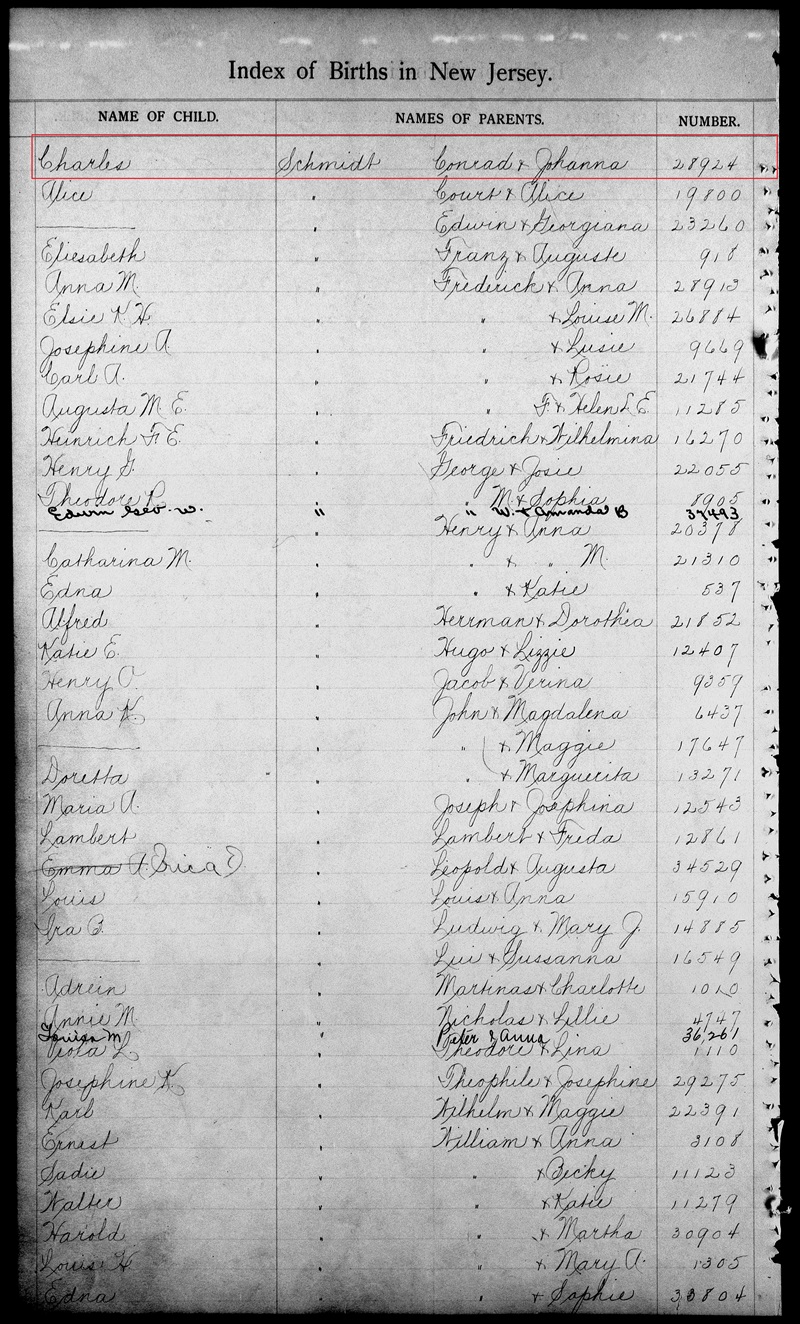 Index of Births in New Jersey.
NAME OF CHILD. NAMES OF PARENTS. NUMBER.
Charles Schmidt Conrad & Johanna 28924
Alice " Court & Alice 19800
——— " Edwin & Georgiana 23260
Eliesabeth " Franz & Auguste 918
Anna M. " Frederick & Anna 28913
Elsie K. H. " " & Louise M. 26884
Josephine A. " " & Lusie 9669
Carl A. " " & Rosie 21744
Augusta M. E. " " F. & Helen L. E. 11285
Heinrich F. E. " Friedrich & Wilhelmina 16270
Henry G. " George & Josie 22055
Theodore P. " " M. & Sophia 8905
Edwin Geo. W. " " W. & Amanda B 37493
——— " Henry & Anna 20378
Catharina M. " " & " M. 21310
Edna " " & Katie 537
Alfred " Herrman & Dorothea 21852
Katie E. " Hugo & Lizzie 12407
Henry O. " Jacob & Verina 9359
Anna K. " John & Magdalena 6437
——— " " & Maggie 17647
Doretta " " & Marguerita 13271
Maria A. " Joseph & Josephina 12543
Lambert " Lambert & Freda 12861
Emma A. " Leopold & Augusta 34529
Louis " Louis & Anna 15910
Ira B. " Ludwig & Mary J. 14885
——— " Lui & Sussanna 16549
Adrein " Martinas & Charlotte 1010
Annie M. " Nicholas & Lillie 4747
Louisa M " Peter & Anna 36,261
Viola L. " Theodore & Lina 1110
Josephine K. " Theophile & Josephine 29275
Karl " Wilhelm & Maggie 22391
Ernest " William & Anna 3108
Sadie " " & Becky 11123
Walter " " & Katie 11279
Harold " " & Martha 30904
Louis H. " " & Mary A. 1305
Edna " " & Sophie 33804